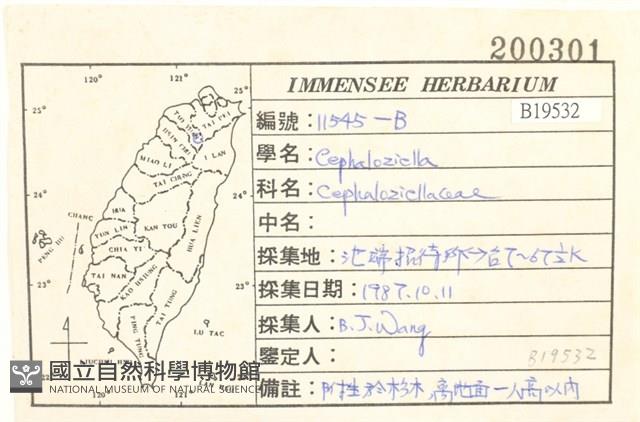 200301
IMMENSEE HERBARIUM
B19532
編號：11545-B
學名：Cephaloziella
科名：Cephaloziellaceae
中名：
採集地：池端招待所
採集日期：1987.10.11
採集人：B.J.Wang
鑒定人：
B19532
備註：附挂於杉木,離地面一人高以內
120°
121°
25°
25°
TAI PEI
HSIN CHU
MIAO LI
I LAN
TAI CHUNG
24°
24°
CHANG
HUA
YUN LIN
NAN TOU
HUA LIEN
PENG HU
CHIA YI
TAI NAN
KAO HSIUNG
23°
23°
TAI TUNG
PING TUNG
LU TAO
LIUCHIU HSU
120°
121°
國立自然科學博物館
NATIONAL MUSEUM OF NATURAL SCIENCE